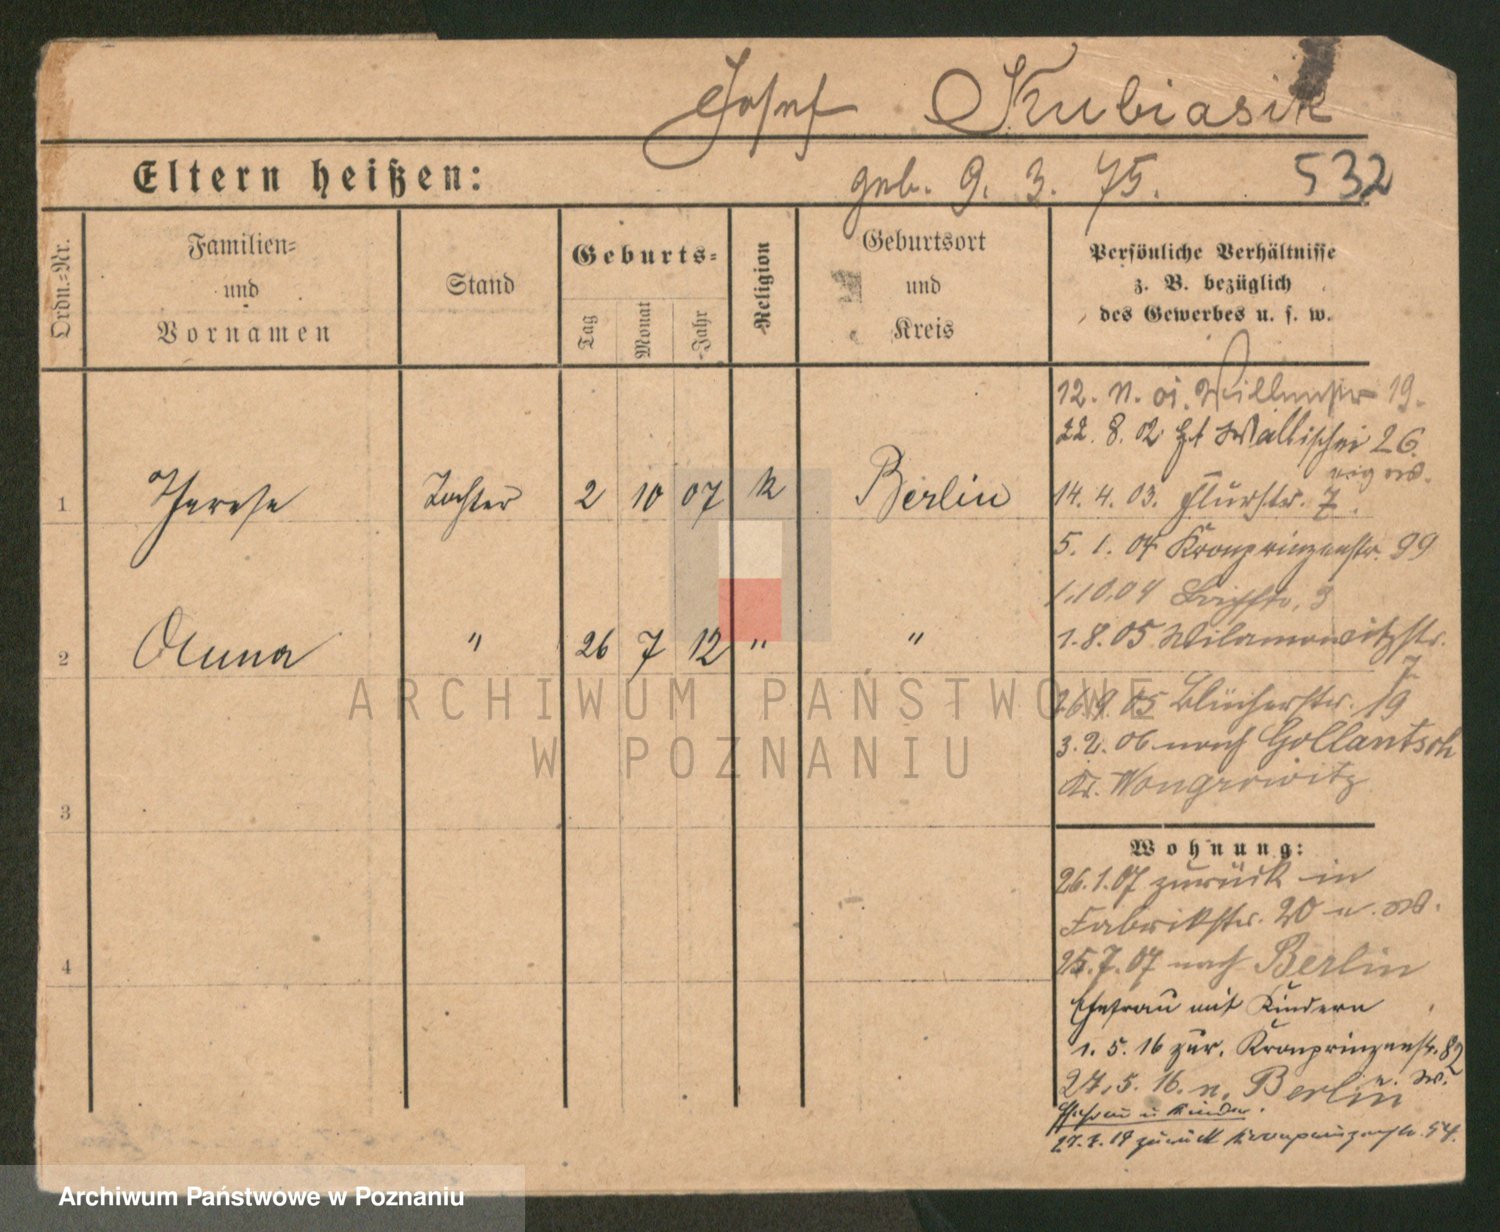 Josef Kubiasik
Eltern heißen: geb. 9. 3. 75. 532
Ordn.-Nr.
Familien-
und
Vornamen
Stand
Geburts-
Tag
Monat
Jahr
Religion
Geburtsort
und
Kreis
Persönliche Verhältnisse
z. B. bezüglich
des Gewerbes u. s. w.
1 Therese Tochter 2 10 07 k Berlin
2 Anna " 26 7 12 " "
3
4
12. 11. 01. 19.
22. 8. 02 Wallischei 26
14. 4. 03. Flurstr. 7.
5. 1. 04 Kronprinzenstr. 99
1.10.04 3
1.8.05 Wilamowitzstr.
7
26.9.05 Blücherstr. 19
3.2.06 nach Gollantsch
Kr. Wongrowitz
Wohnung:
26.1.07 zurück in
Fabrikstr. 20 u. W.
25.7.07 nach Berlin
Ehefrau mit Kindern
1. 5. 16 zur. Kronprinzenstr. 82
u. W.
24.5.16. n. Berlin
Ehefrau u Kinder.
zurück Kronprinzenstr. 54.
ARCHIWUM PAŃSTWOWE
W POZNANIU
Archiwum Państwowe w Poznaniu